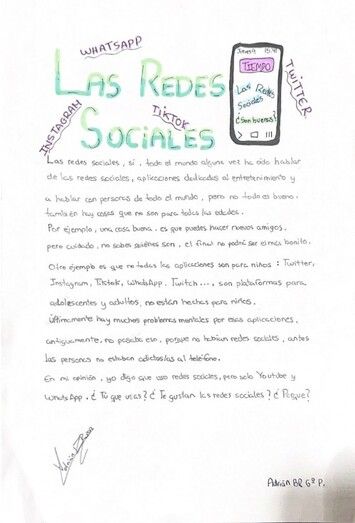 WHATSAPP
LAS REDES
SOCIALES
INSTAGRAM
TIKTOK
TWITTER
TIEMPO
Las Redes
Sociales
¿Son buenas?
Las redes sociales, sí, todo el mundo alguna vez ha oido hablar
de las redes sociales, aplicaciones dedicadas al entretenimiento y
a hablar con personas de todo el mundo, pero no todo es bueno,
también hay cosas que no son para todas las edades.
Por ejemplo, una cosa buena, es que puedes hacer nuevos amigos,
pero cuidado, no sabes quiénes son, el final no podrá ser el más bonito.
Otro ejemplo es que no todas las aplicaciones son para niños: Twitter,
Instagram, Tiktok, WhatsApp, Twitch..., son plataformas para
adolescentes y adultos, no están hechas para niños.
Últimamente hay muchos problemas mentales por esas aplicaciones,
antiguamente, no pasaba eso, porque no habían redes sociales, antes
las personas no estaban adictos/as al teléfono.
En mi opinión, yo digo que uso redes sociales, pero solo Youtube y
WhatsApp. ¿Tú que usas? ¿Te gustan las redes sociales? ¿Porque?
Adrián BR 6º P.